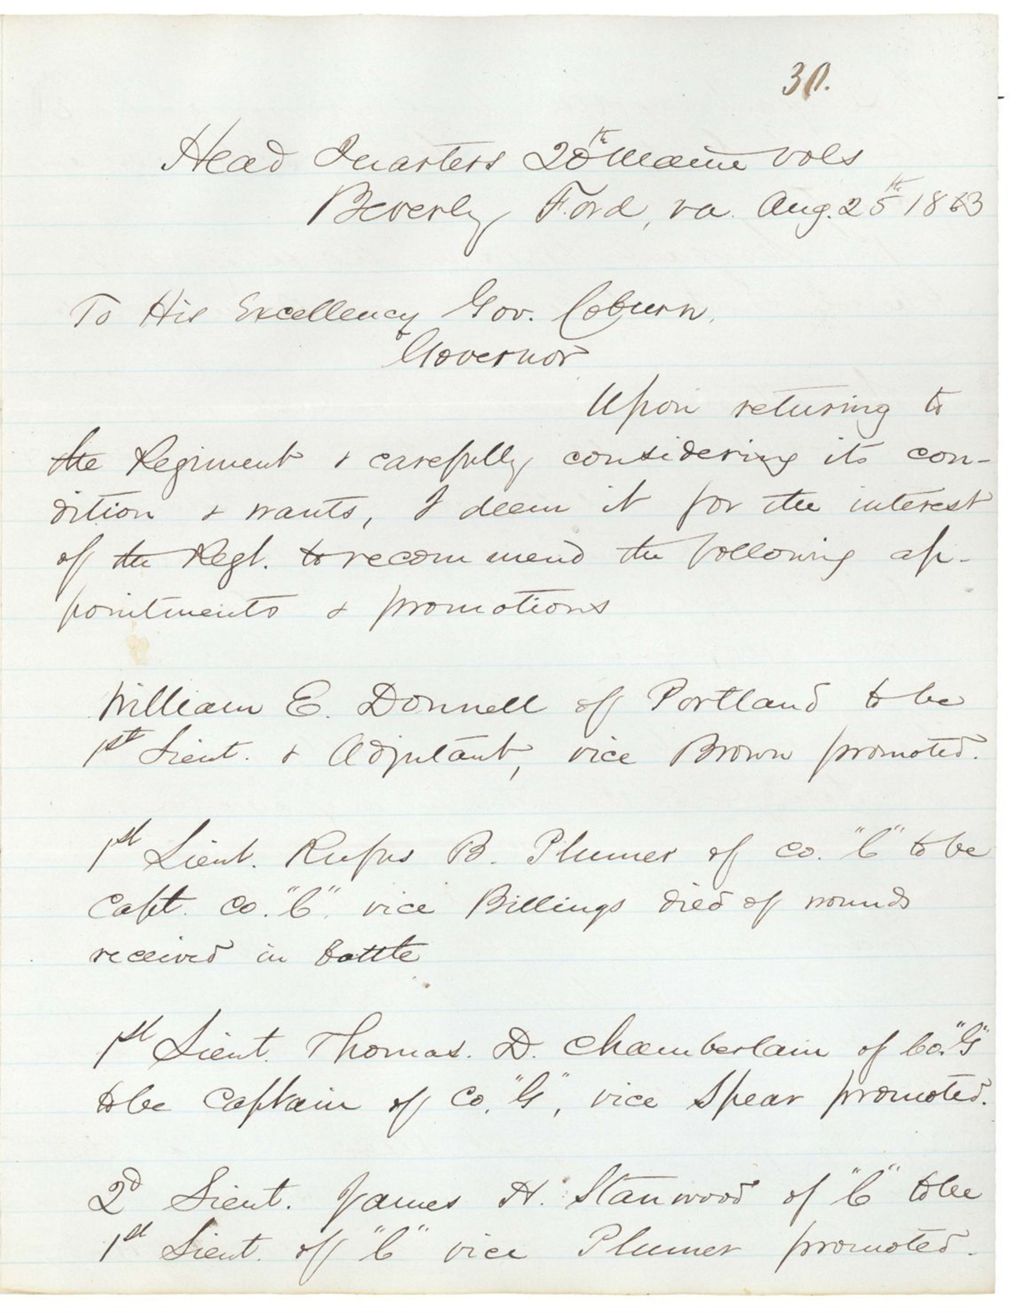 30.
Head Quarters 20th Maine Vols
Beverly Ford, Va. Aug. 25th 1863
To His Excellency Gov. Coburn,
Governor
Upon returing to
the Regiment & carefully considering its con-
dition & wants, I deem it for the interest
of the Regt. to recommend the following ap-
pointments & promotions
William E. Donnell of Portland to be
1st Lieut. & Adjutant, vice Brown promoted.
1st Lieut. Rufus B. Plumer of Co. "C" to be
Capt. Co. "C" vice Billings died of wounds
received in battle
1st Lieut. Thomas. D. Chamberlain of Co. "G"
to be Captain of Co. "G", vice Spear promoted.
2d Lieut. James H. Stanwood of "C" to be
1st Lieut. of "C" vice Plumer promoted.